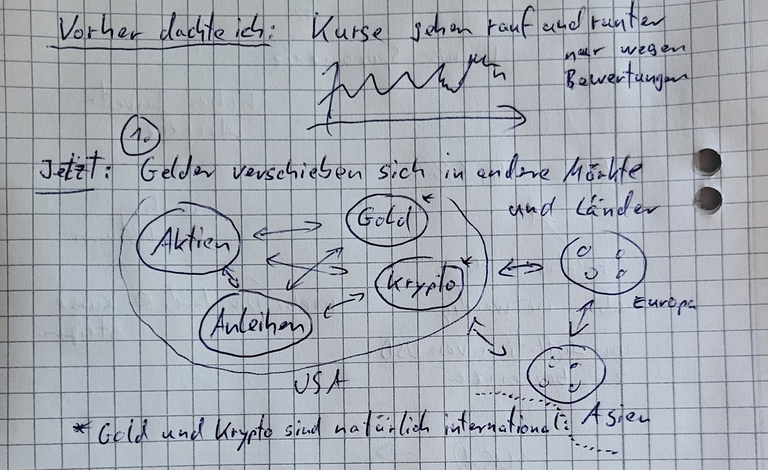 Vorher dachte ich: Kurse gehen rauf und runter
nur wegen
Bewertungen
1.
Jetzt: Gelder verschieben sich in andere Märkte
und Länder
Aktien
Gold*
Krypto*
Anleihen
Europa
USA
Asien
* Gold und Krypto sind natürlich international: